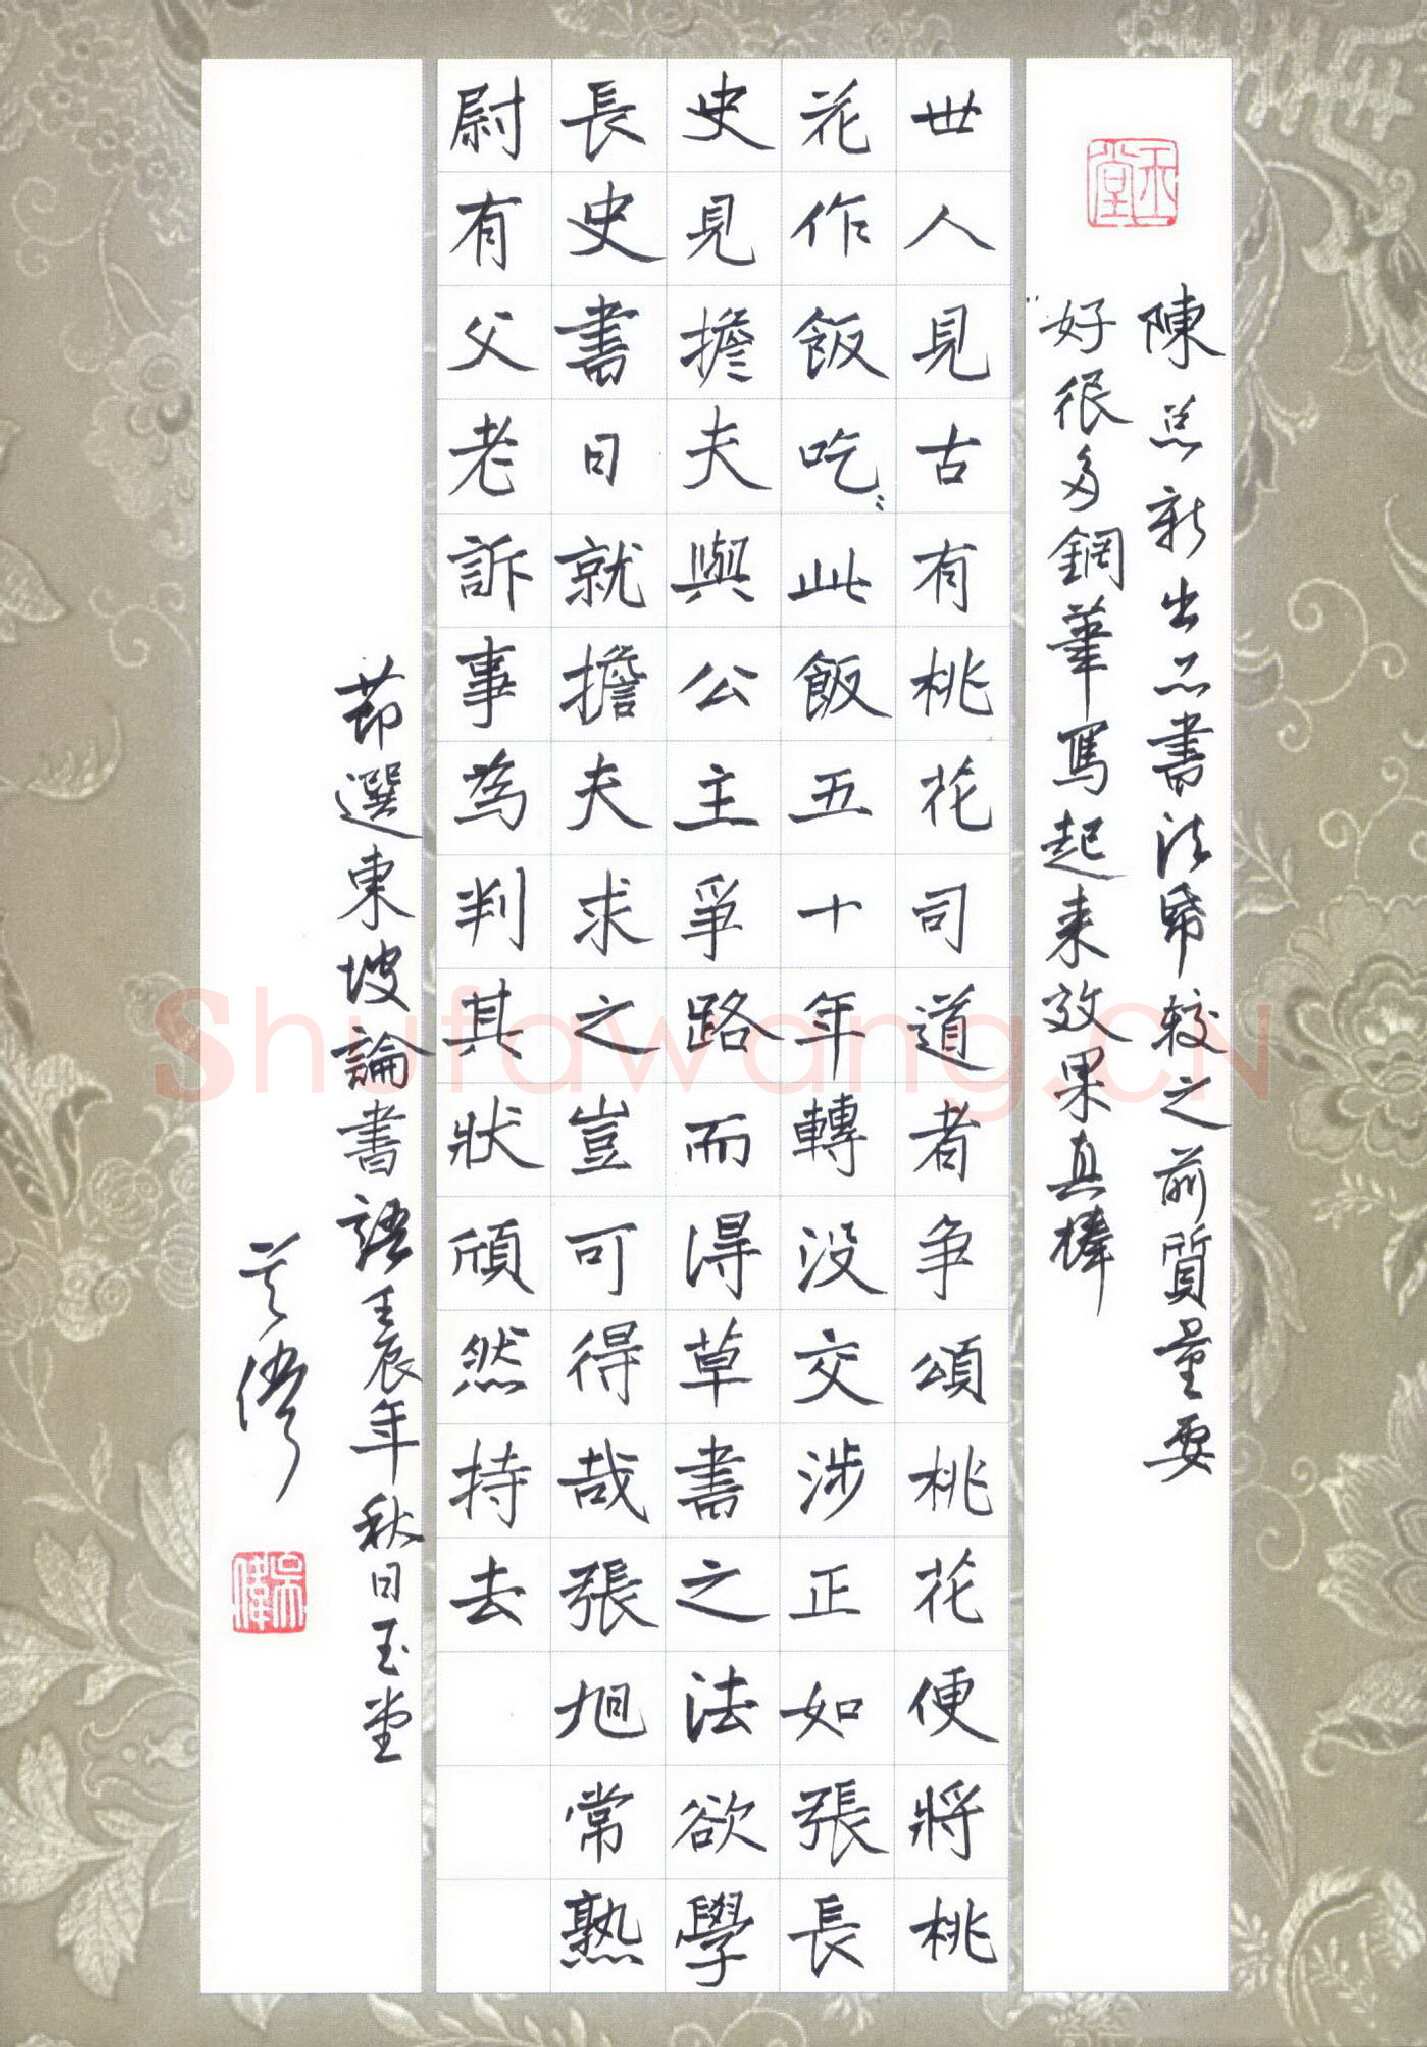 玉堂
陳总新出品書法紙較之前質量要
好很多鋼筆寫起来效果真棒
世人見古有桃花司道者争頌桃花便將桃
花作飯吃〻此飯五十年轉没交涉正如張長
史見擔夫與公主爭路而得草書之法欲學
長史書日就擔夫求之豈可得哉張旭常熟
尉有父老訴事為判其狀頎然持去
節選東坡論書語壬辰年秋日玉堂
吴偉
吴偉
Shufawang.CN